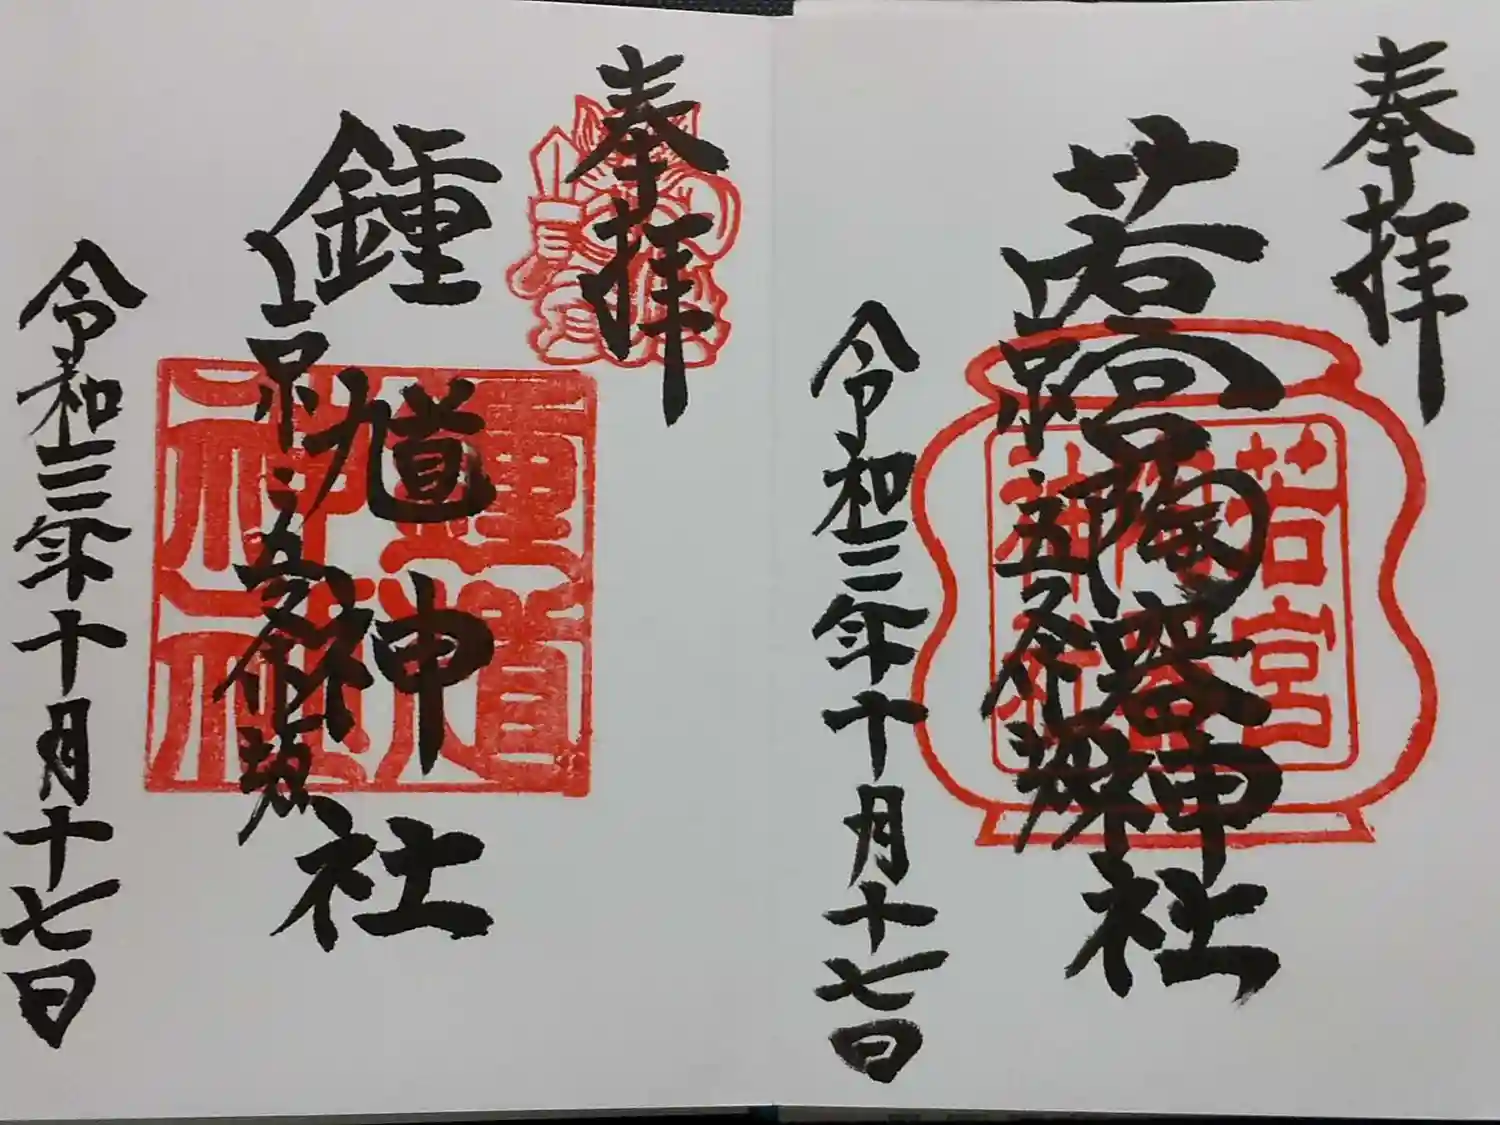 奉拝
若宮陶器神社
五条坂
令和三年十月十七日
若宮
陶器
神社
奉拝
鍾馗神社
五条坂
令和三年十月十七日
鍾馗
神社